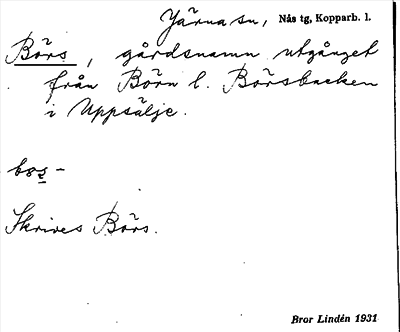 Järna sn, Nås tg, Kopparb. l.
Börs, gårdsnamn utgånget
från Börn l. Börsbacken
i Uppsälje.
bos -
Skrives Börs.
Bror Lindén 1931